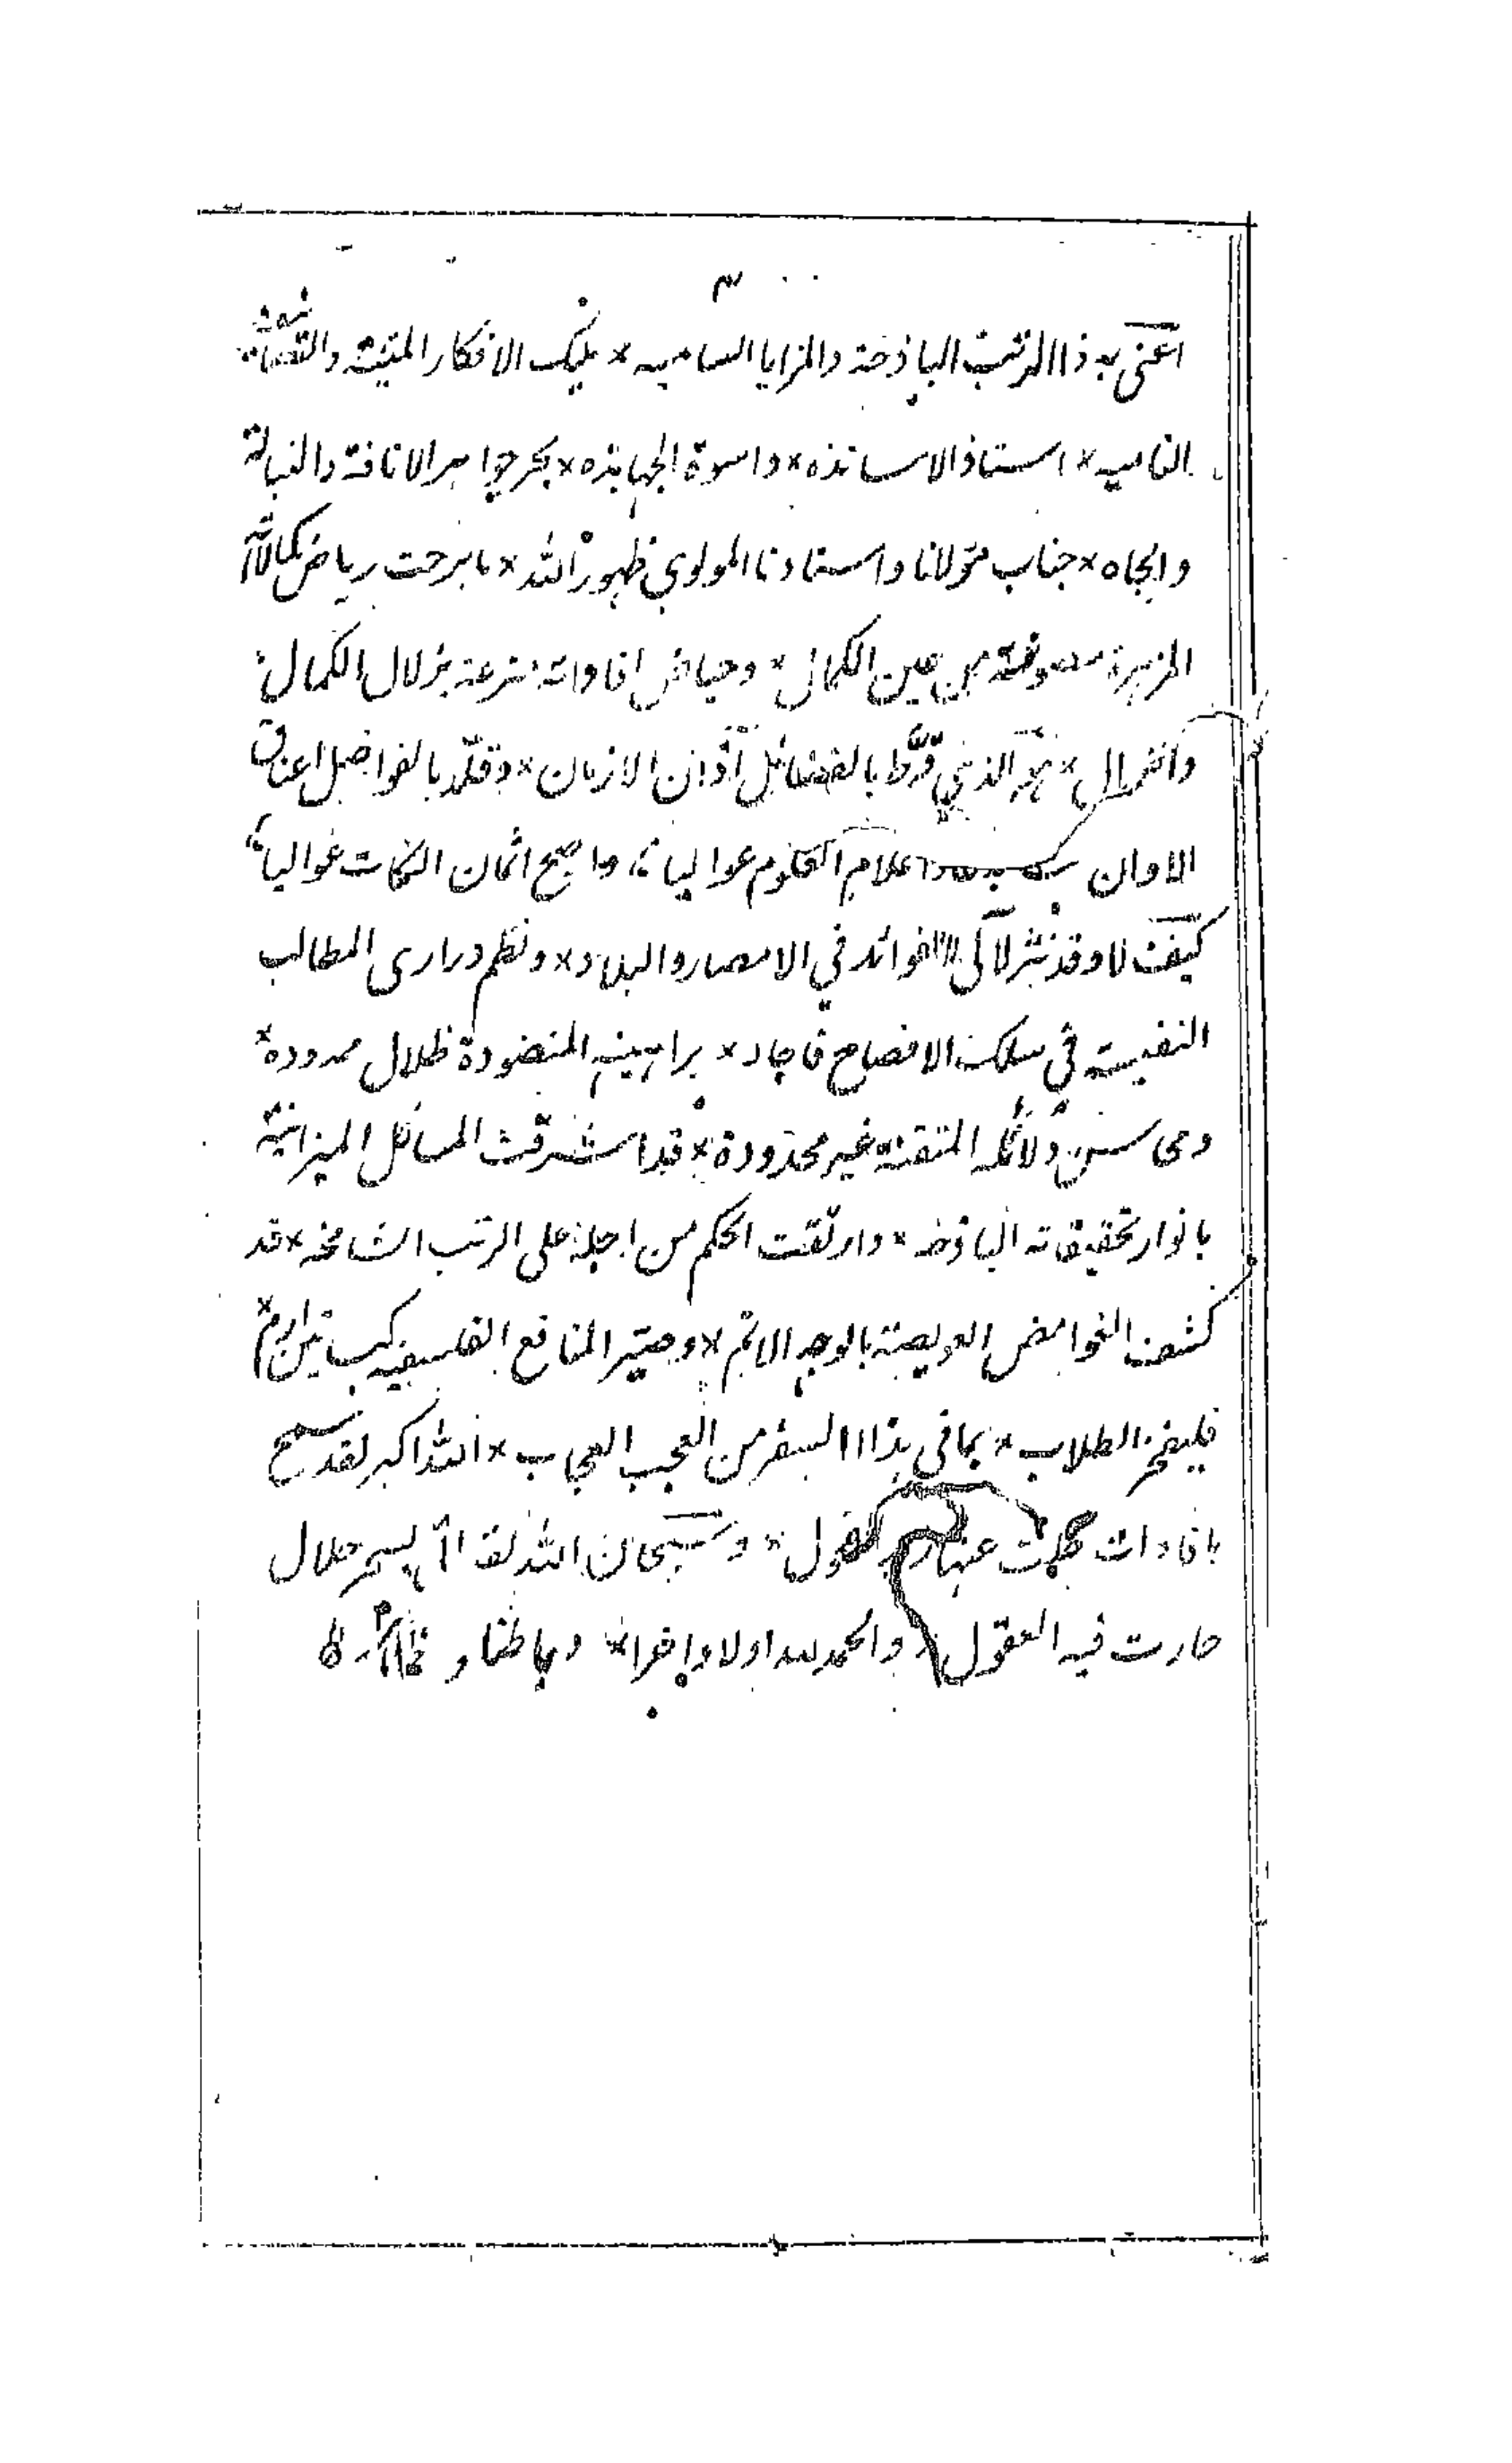 ٣
اعنى به ذا الرتب الباذخة والمزايا الساميه * مليك الافكار المتينة
الناميه * استاذ الاساتذه * واسوة الجهابذه * بحر جواهر الانافة والنبالة
والجاه * جناب مولانا واستاذنا المولوي ظهور الله * ما برحت رياض كمالاته
المزهرة مصونة من عين الكمال * وحياض افاداته مترعة بزلال الكمال *
هو الذي قرّط بالفضائل آذان الازمان * وقلّد بالفواضل اعناق
الاوان اعلام العلوم عواليا * واصبح اثمان النكات غواليا *
كيف لا وقد نثر لآلى الفوائد في الامصار والبلاد * ونظم درارى المطالب
النفيسة في سلك الافصاح فاجاد * براهينه المنضودة ظلال ممدودة *
ومحاسن دلائله المتقنة غير محدودة * قد اشرقت المسائل الميزانية
بانوار تحقيقاته الباذخه * وارتقت الحكم من اجله على الرتب الشامخه * قد
كشف الغوامض العويصة بالوجه الاتم * وصيّر المنافع الفلسفيه كبساتين ارم *
فليفخر الطلاب * بما في هذا السفر من العجب العجاب * الله اكبر لقد سمح
بافادات عنها الفحول * وسبحان الله لقد اتى بسحر حلال
حارت فيه العقول * والحمد لله اولا واخرا * وباطنا و ظاهرا